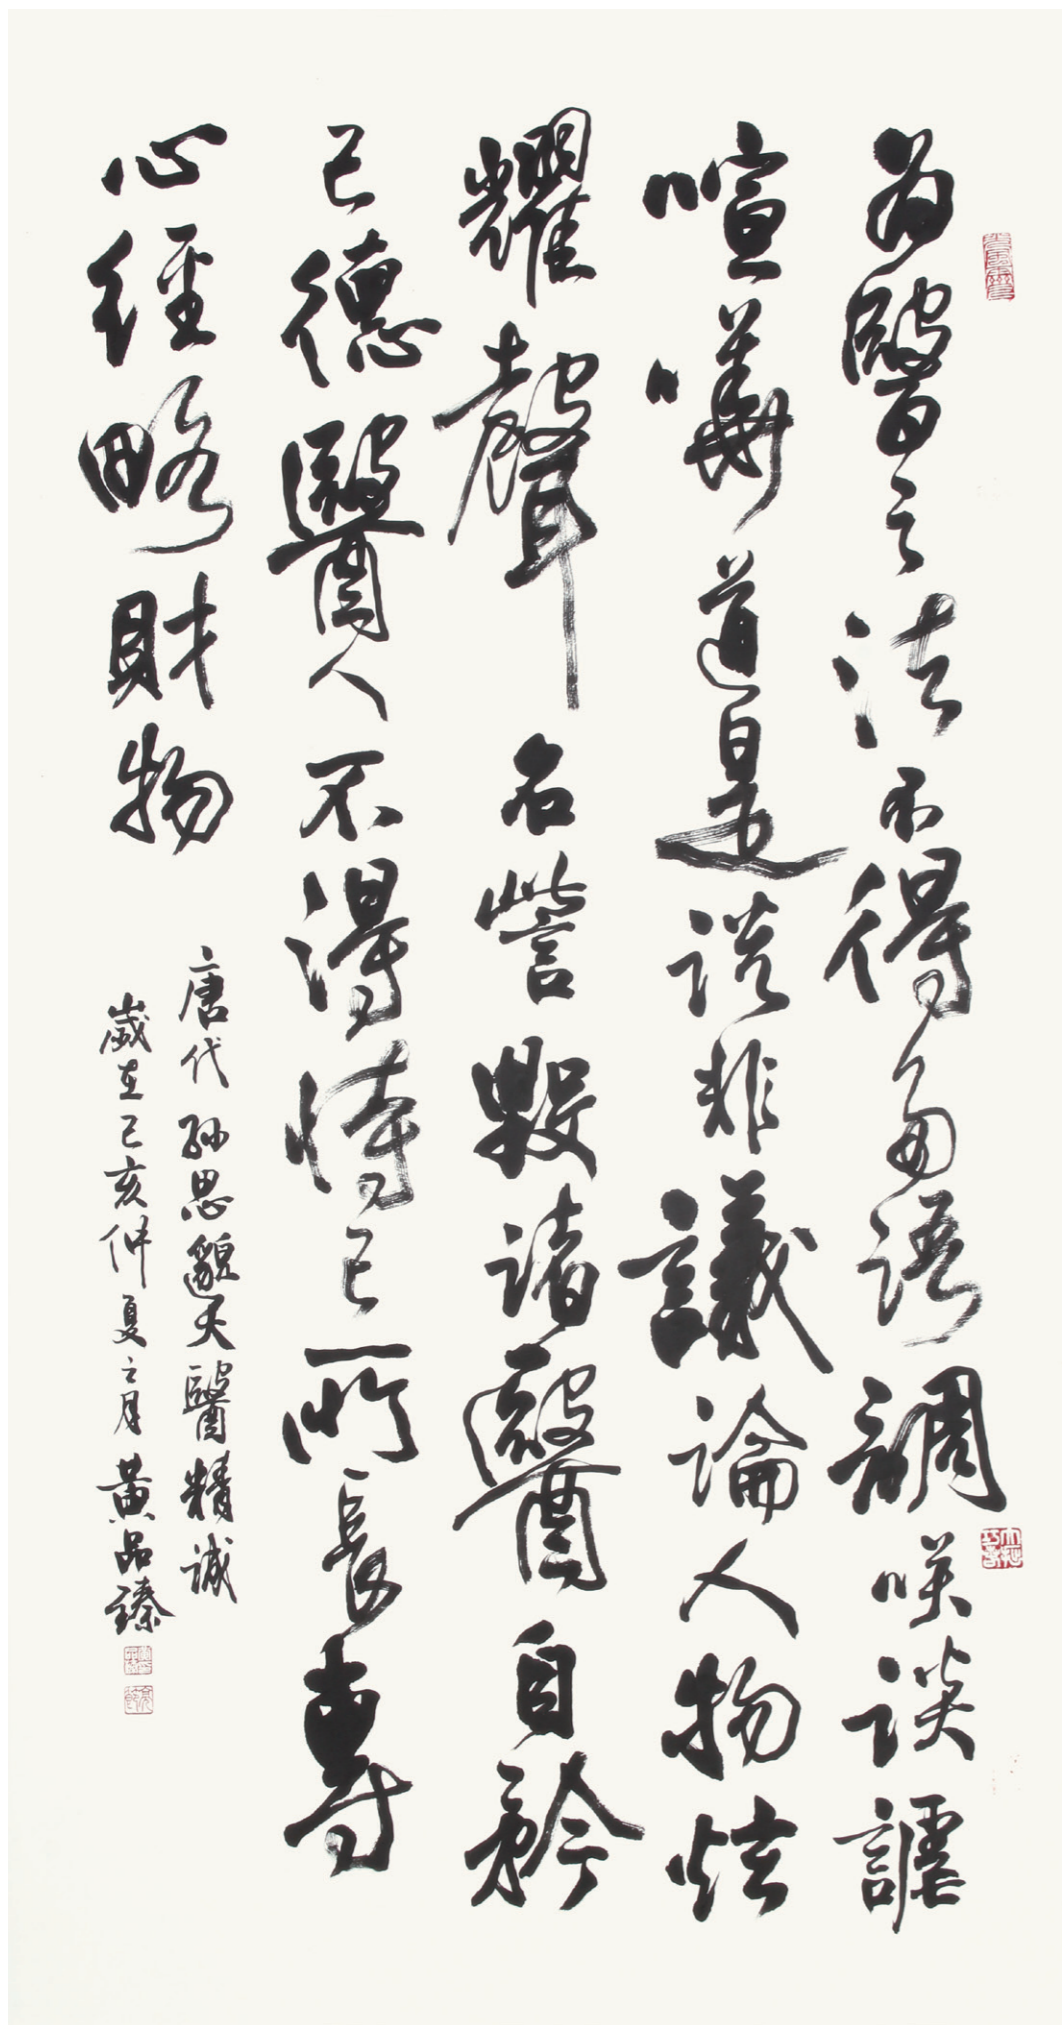 為醫之法不得多語調笑談謔
喧嘩道是談非議論人物炫
耀聲名訾毀諸醫自矜
己德醫人不得恃己所長專
心經略財物
唐代孙思邈大醫精诚
歲在己亥仲夏之月黃品臻